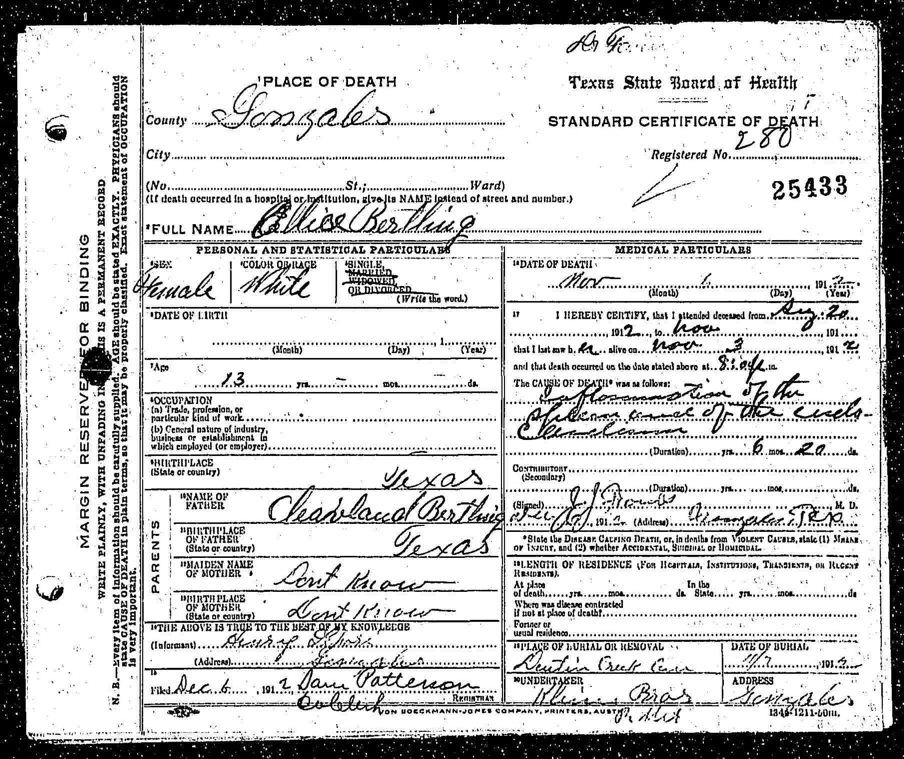 Dr
¹PLACE OF DEATH
County Gonzales
City
(No. St.; Ward)
(If death occurred in a hospital or institution, give its NAME instead of street and number.)
Texas State Board of Health
STANDARD CERTIFICATE OF DEATH
Registered No. 280
25433
²FULL NAME Allice Bertling
PERSONAL AND STATISTICAL PARTICULARS
³SEX
Female
⁴COLOR OR RACE
White
⁵SINGLE,
MARRIED
WIDOWED,
OR DIVORCED
(Write the word.)
⁶DATE OF BIRTH
, 1
(Month) (Day) (Year)
⁷Age
13 yrs. – mos. – ds.
⁸OCCUPATION
(a) Trade, profession, or
particular kind of work
(b) General nature of industry,
business or establishment in
which employed (or employer)
⁹BIRTHPLACE
(State or country)
Texas
PARENTS
¹⁰NAME OF
FATHER
Cleavland Bertling
¹¹BIRTHPLACE
OF FATHER
(State or country)
Texas
¹²MAIDEN NAME
OF MOTHER
Dont Know
¹³BIRTHPLACE
OF MOTHER
(State or country)
Dont Know
¹⁴THE ABOVE IS TRUE TO THE BEST OF MY KNOWLEDGE
(Informant) Henry
(Address) Gonzales
¹⁵
Filed Dec 6, 1912 Dave Patterson
REGISTRAR
MEDICAL PARTICULARS
¹⁶DATE OF DEATH
Nov , 1912
(Month) (Day) (Year)
¹⁷ I HEREBY CERTIFY, that I attended deceased from Aug. 20
, 1912 to Nov , 191
that I last saw her alive on Nov 3, 1912
and that death occurred on the date stated above at m.
The CAUSE OF DEATH* was as follows:
Inflammation of the
Spleen and of the
(Duration) yrs. 6 mos. 20 ds.
CONTRIBUTORY
(Secondary)
(Duration) yrs. mos. ds.
(Signed) J. J. M. D.
, 1912 (Address) Gonzales, Tex
*State the DISEASE CAUSING DEATH, or, in deaths from VIOLENT CAUSES, state (1) MEANS
OF INJURY, and (2) whether ACCIDENTAL, SUICIDAL or HOMICIDAL.
¹⁸LENGTH OF RESIDENCE (FOR HOSPITALS, INSTITUTIONS, TRANSIENTS, OR RECENT
RESIDENTS).
At place In the
of death yrs. mos. ds. State yrs. mos. ds.
Where was disease contracted
if not at place of death?
Former or
usual residence
¹⁹PLACE OF BURIAL OR REMOVAL
Creek Cem
DATE OF BURIAL
, 1912
²⁰UNDERTAKER
Bros
ADDRESS
Gonzales
VON BOECKMANN-JONES COMPANY, PRINTERS, AUSTIN
1346-1211-50m.
MARGIN RESERVED FOR BINDING
WRITE PLAINLY, WITH UNFADING INK THIS IS A PERMANENT RECORD
N. B.—Every item of information should be carefully supplied. AGE should be stated EXACTLY. PHYSICIANS should
state CAUSE OF DEATH in plain terms, so that it may be properly classified. Exact statement of OCCUPATION
is very important.